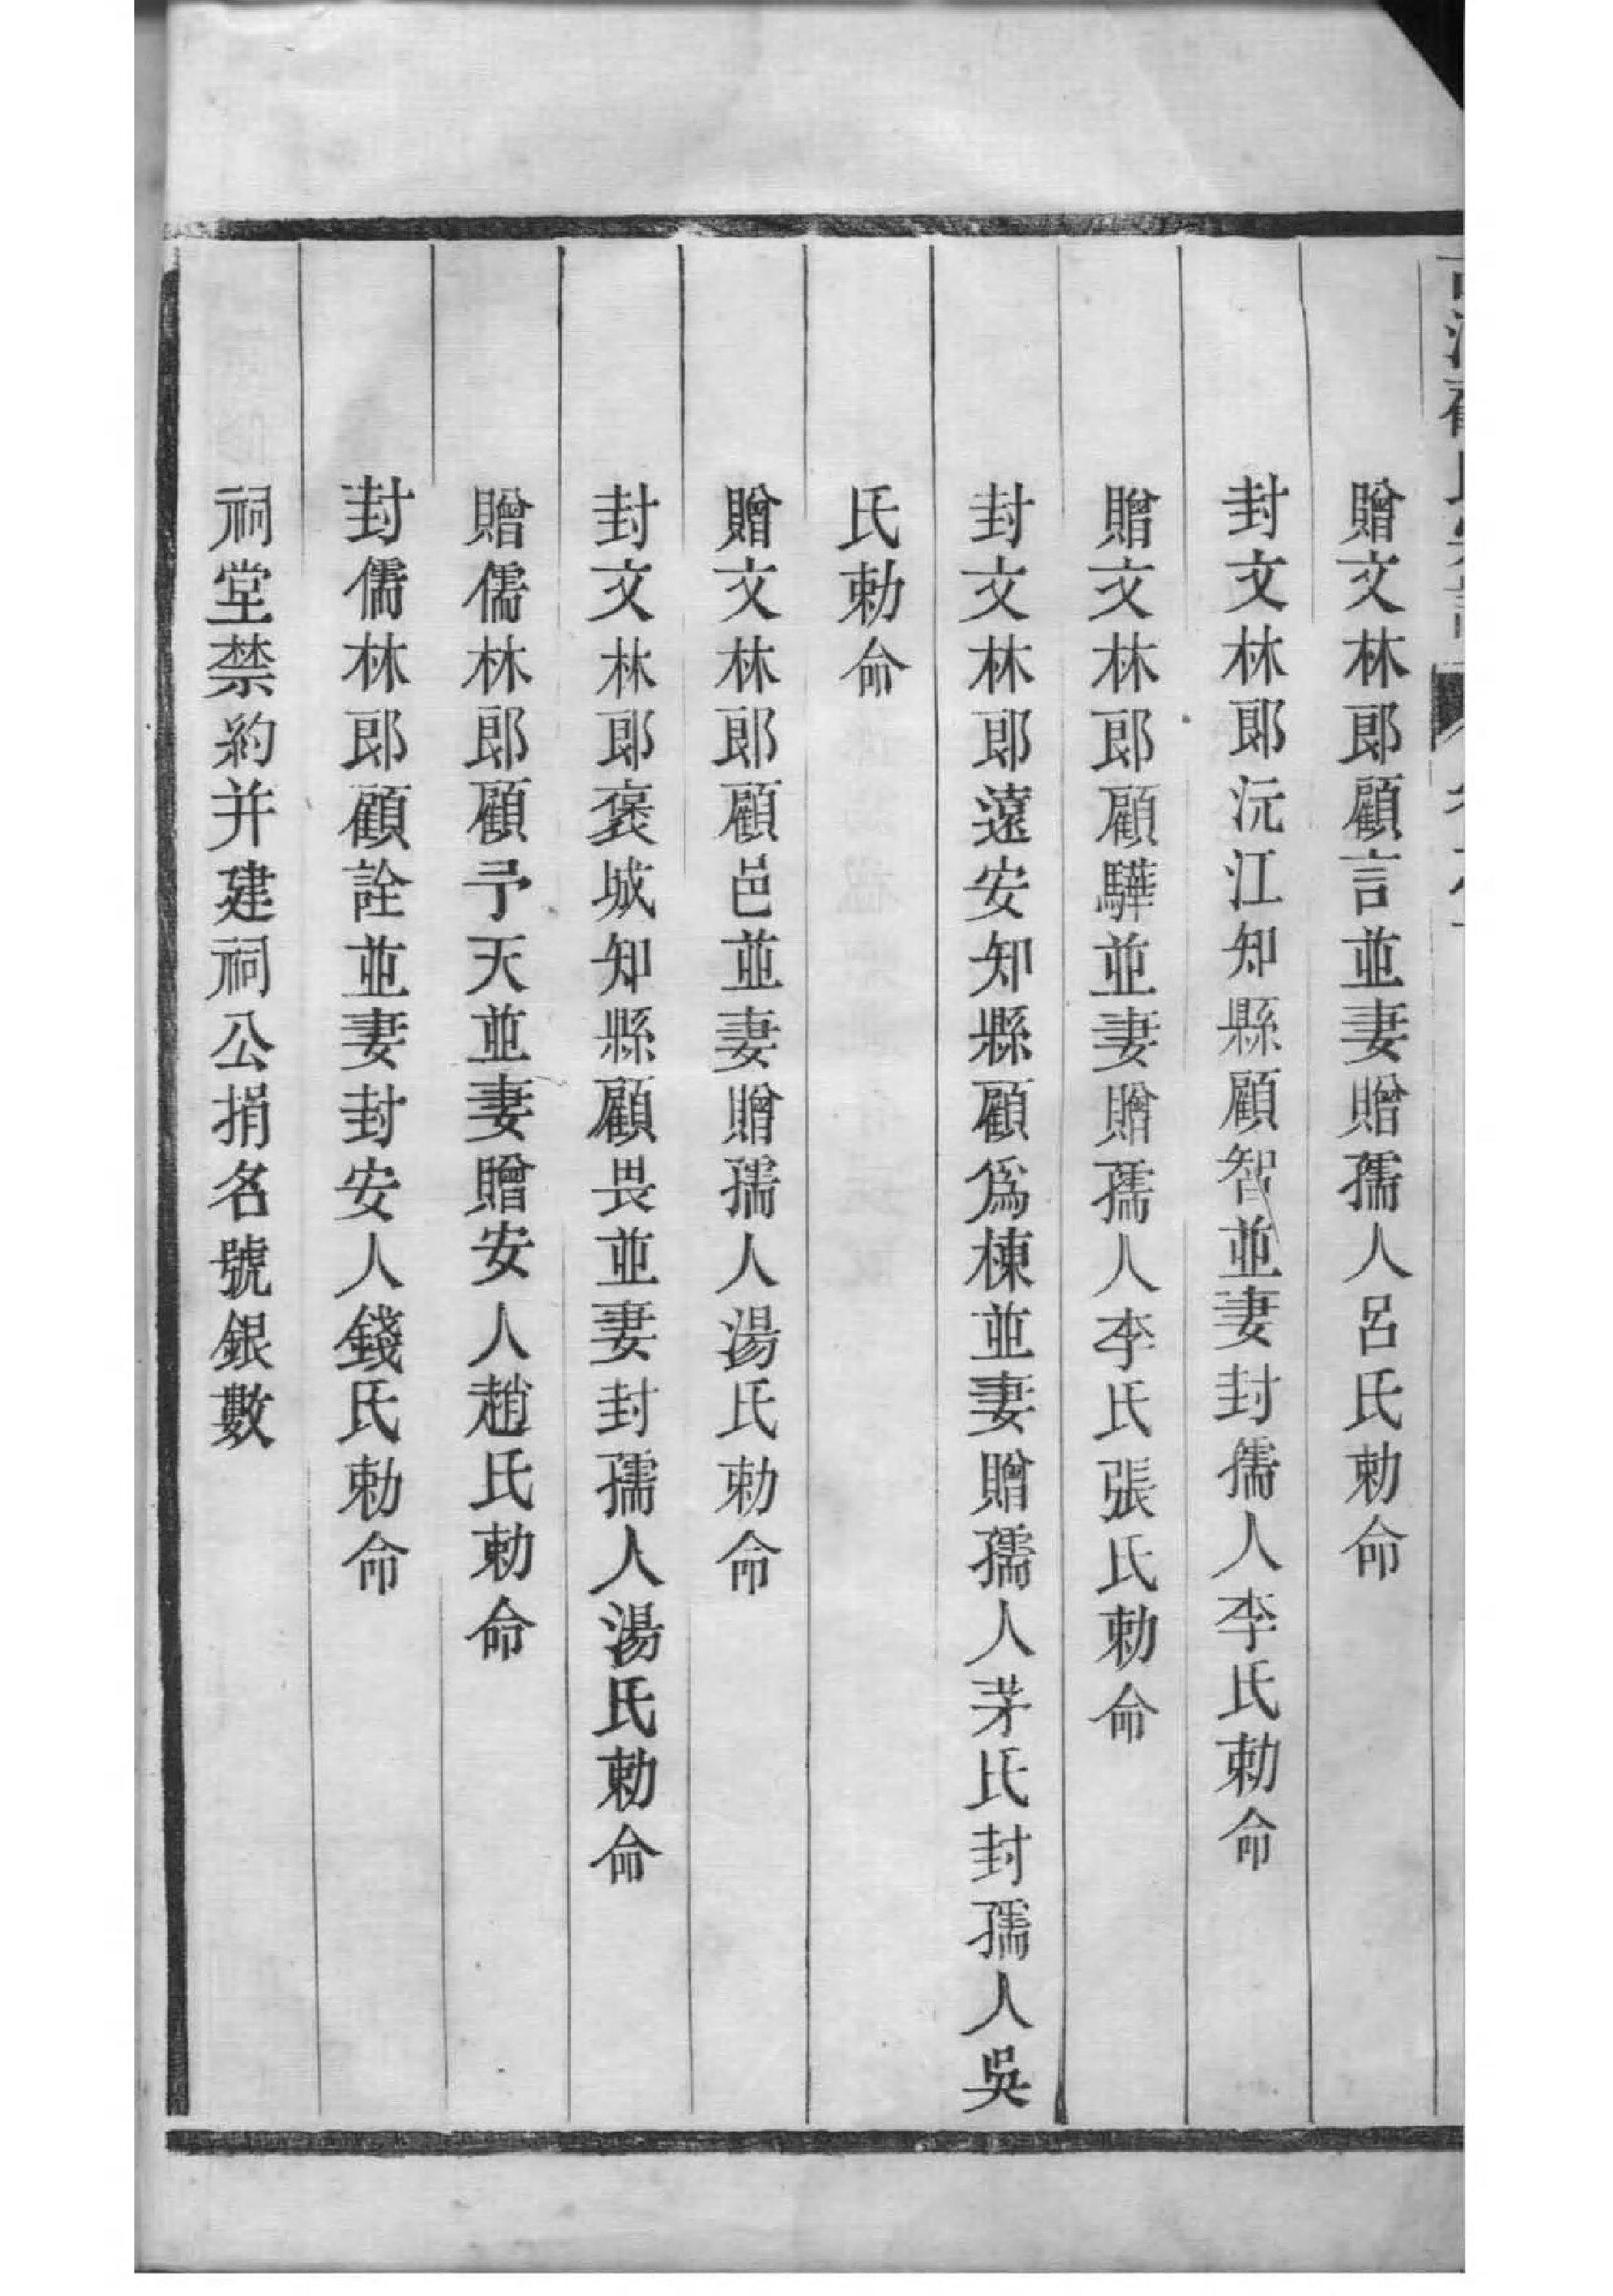 贈文林郎顧言並妻贈孺人呂氏勅命
封文林郎沅江知縣顧智並妻封孺人李氏勅命
贈文林郎顧驊並妻贈孺人李氏張氏勅命
封文林郎遠安知縣顧爲棟並妻贈孺人茅氏封孺人吳
氏勅命
贈文林郎顧邑並妻贈孺人湯氏勅命
封文林郎褒城知縣顧畏並妻封孺人湯氏勅命
贈儒林郎顧予天並妻贈安人趙氏勅命
封儒林郎顧詮並妻封安人錢氏勅命
祠堂禁約并建祠公捐名號銀數